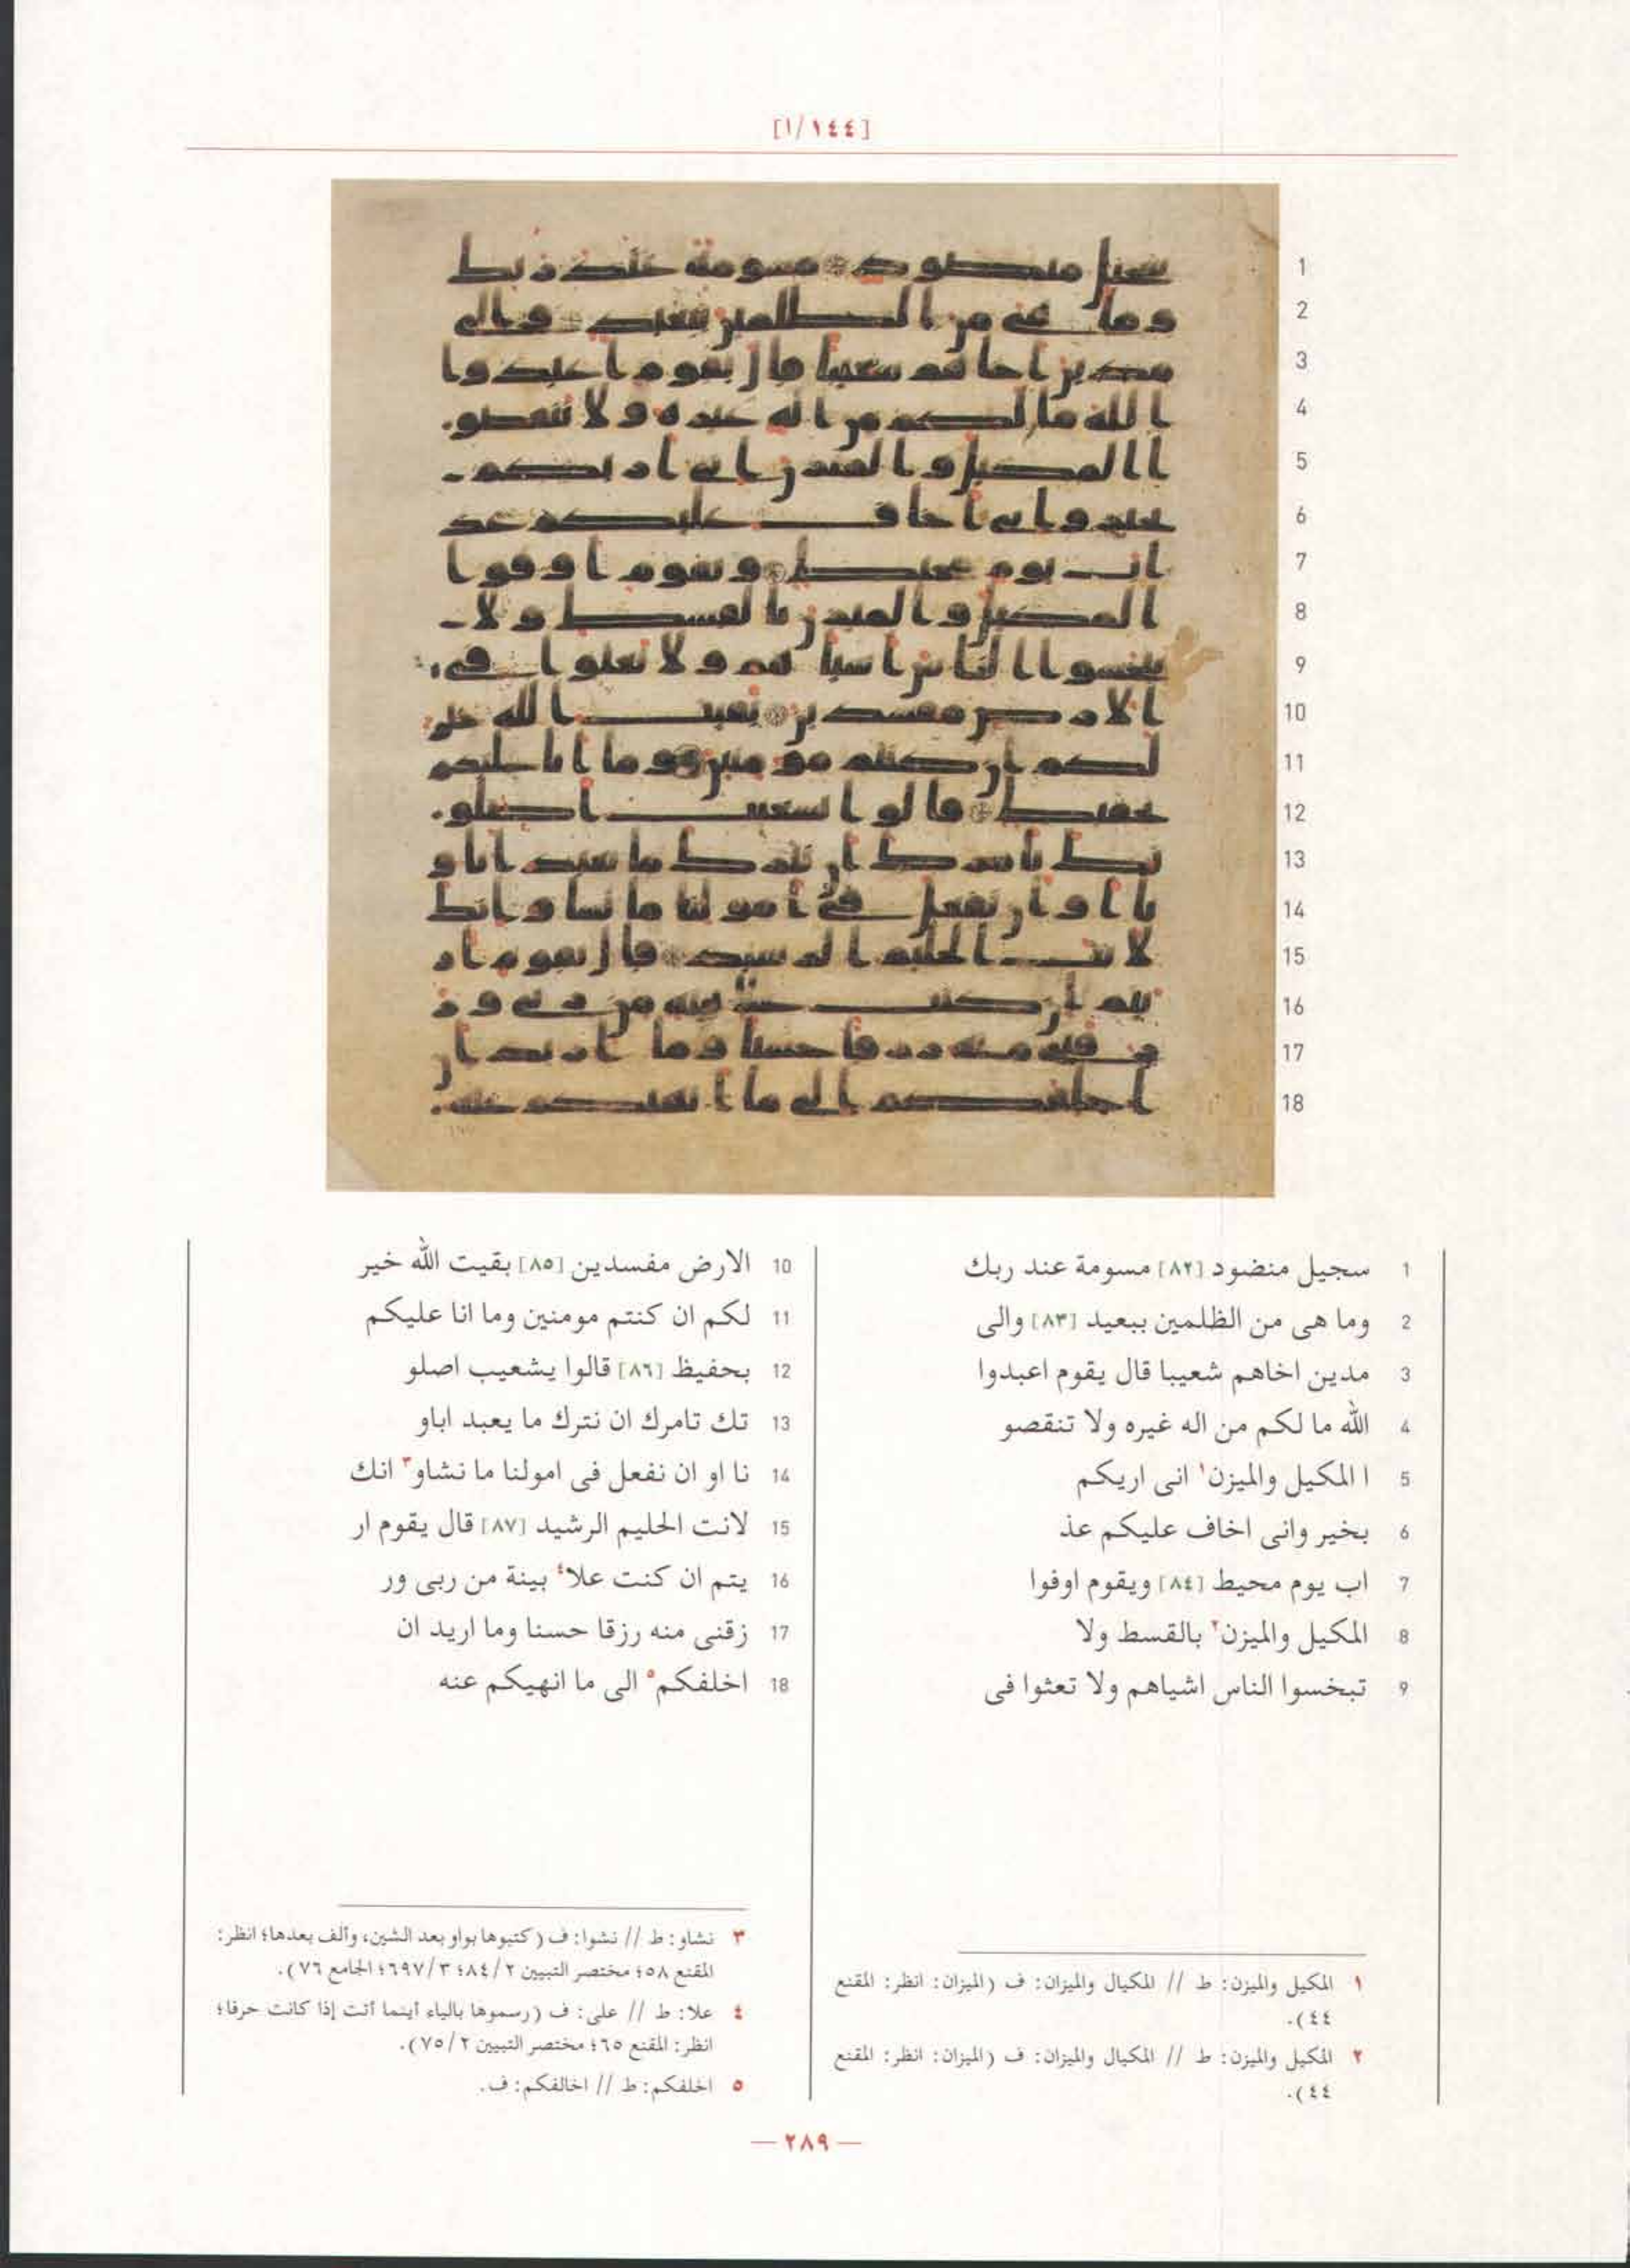 [١/١٤٤]
1 سجيل منضود [٨٢] مسومة عند ربك
2 وما هى من الظلمين ببعيد [٨٣] والى
3 مدين اخاهم شعيبا قال يقوم اعبدوا
4 الله ما لكم من اله غيره ولا تنقصو
5 ا المكيل والميزن١ انى اريكم
6 بخير وانى اخاف عليكم عذ
7 اب يوم محيط [٨٤] ويقوم اوفوا
8 المكيل والميزن٢ بالقسط ولا
9 تبخسوا الناس اشياهم ولا تعثوا فى
10 الارض مفسدين [٨٥] بقيت الله خير
11 لكم ان كنتم مومنين وما انا عليكم
12 بحفيظ [٨٦] قالوا يشعيب اصلو
13 تك تامرك ان نترك ما يعبد اباو
14 نا او ان نفعل فى امولنا ما نشاو٣ انك
15 لانت الحليم الرشيد [٨٧] قال يقوم ار
16 يتم ان كنت علا٤ بينة من ربى ور
17 زقنى منه رزقا حسنا وما اريد ان
18 اخلفكم٥ الى ما انهيكم عنه
١ المكيل والميزن: ط // المكيال والميزان: ف (الميزان: انظر: المقنع
٤٤).
٢ المكيل والميزن: ط // المكيال والميزان: ف (الميزان: انظر: المقنع
٤٤).
٣ نشاو: ط // نشوا: ف (كتبوها بواو بعد الشين، وألف بعدها؛ انظر:
المقنع ٥٨؛ مختصر التبيين ٨٤/٢؛ ٦٩٧/٣؛ الجامع ٧٦).
٤ علا: ط // على: ف (رسموها بالياء أينما أتت إذا كانت حرفا؛
انظر: المقنع ٦٥؛ مختصر التبيين ٧٥/٢).
٥ اخلفكم: ط // اخالفكم: ف.
— ٢٨٩ —